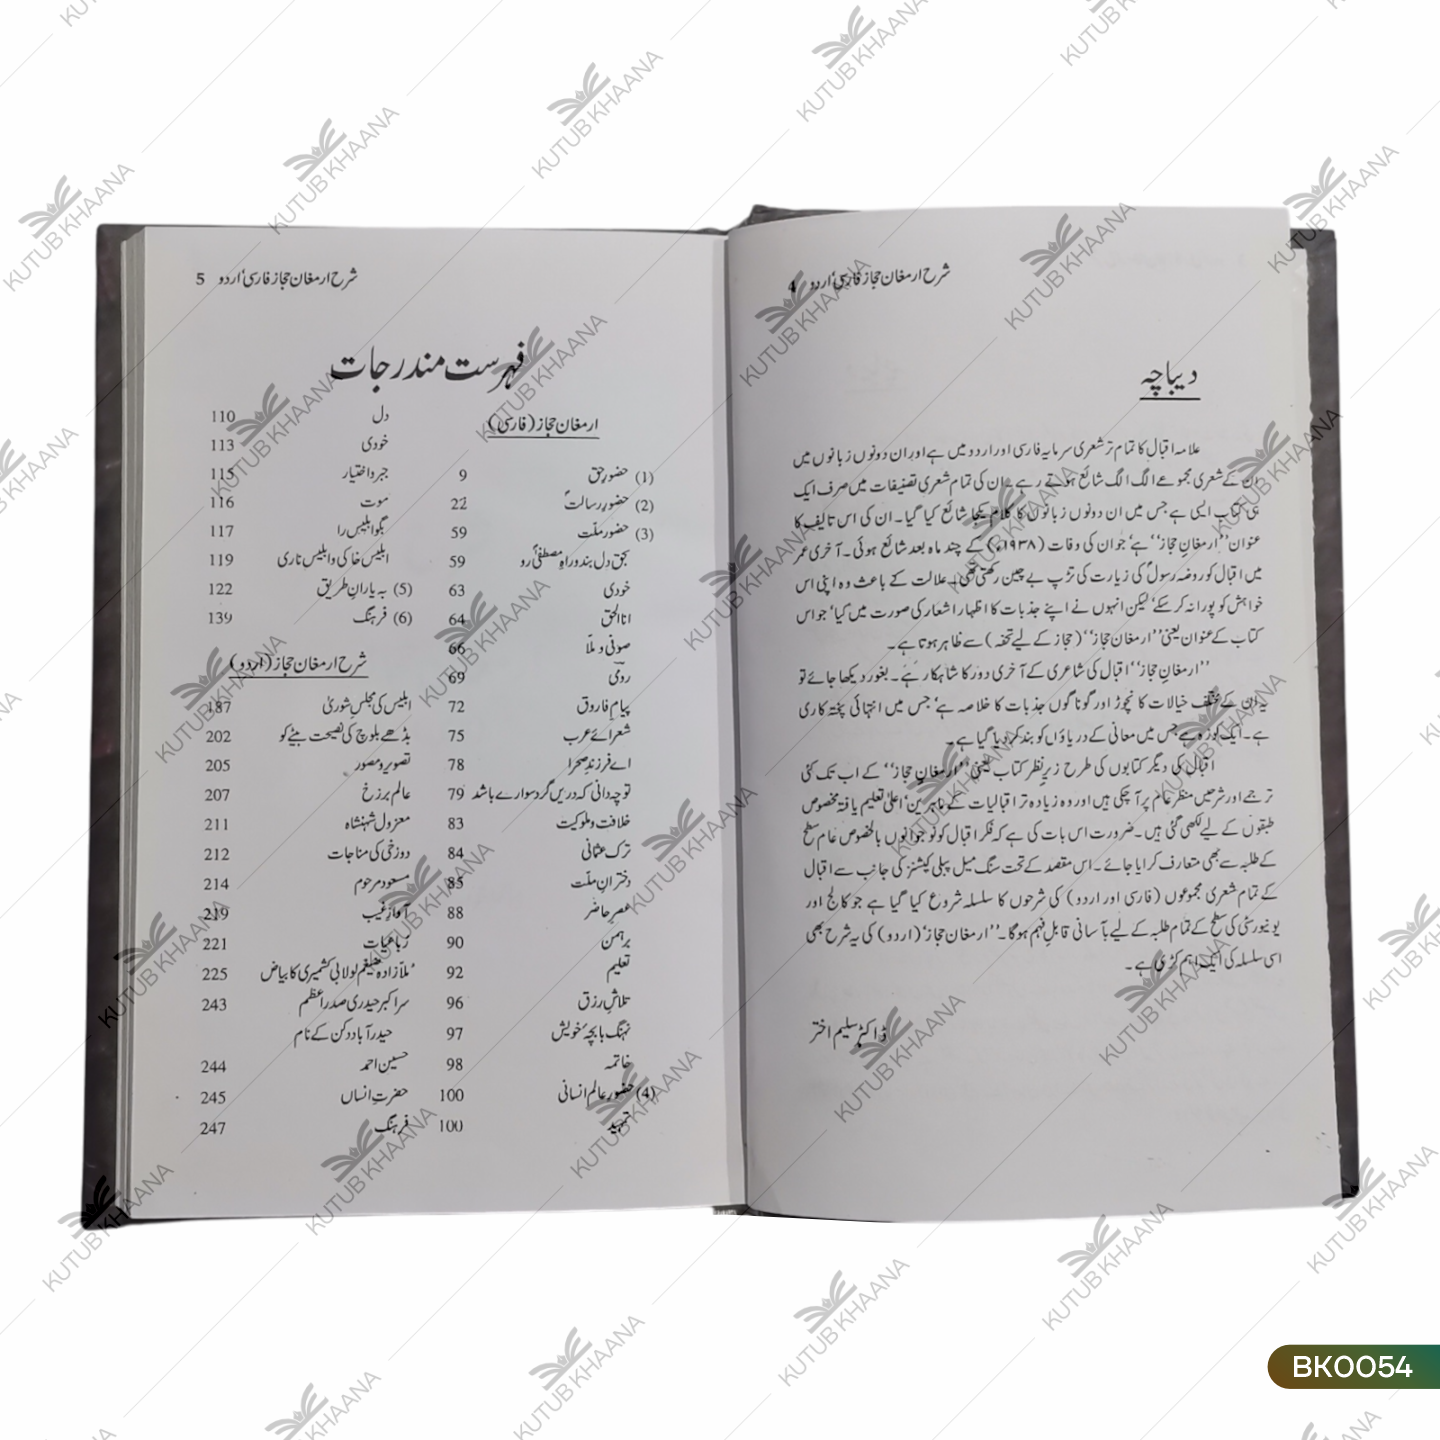 شرح ارمغان حجاز فارسی‘ اردو 4
دیباچہ
علامہ اقبال کا تمام تر شعری سرمایہ فارسی اور اردو میں ہے اور ان دونوں زبانوں میں
ان کے شعری مجموعے الگ الگ شائع ہوتے رہے۔ ان کی تمام شعری تصنیفات میں صرف ایک
ہی کتاب ایسی ہے جس میں ان دونوں زبانوں کا کلام یکجا شائع کیا گیا۔ ان کی اس تالیف کا
عنوان ’’ارمغانِ حجاز‘‘ ہے‘ جو ان کی وفات (۱۹۳۸ء) کے چند ماہ بعد شائع ہوئی۔ آخری عمر
میں اقبال کو روضہ رسولؐ کی زیارت کی تڑپ بے چین رکھتی تھی۔ علالت کے باعث وہ اپنی اس
خواہش کو پورا نہ کر سکے‘ لیکن انہوں نے اپنے جذبات کا اظہار اشعار کی صورت میں کیا‘ جو اس
کتاب کے عنوان یعنی ’’ارمغان حجاز‘‘ (حجاز کے لیے تحفہ) سے ظاہر ہوتا ہے۔
’’ارمغانِ حجاز‘‘ اقبال کی شاعری کے آخری دور کا شاہکار ہے۔ بغور دیکھا جائے تو
یہ ان کے مختلف خیالات کا نچوڑ اور گوناگوں جذبات کا خلاصہ ہے‘ جس میں انتہائی پختہ کاری
ہے۔ ایک کوزہ ہے جس میں معانی کے دریاؤں کو بند کر دیا گیا ہے۔
اقبال کی دیگر کتابوں کی طرح زیرِ نظر کتاب یعنی ’’ارمغانِ حجاز‘‘ کے اب تک کئی
ترجمے اور شرحیں منظر عام پر آ چکی ہیں اور وہ زیادہ تر اقبالیات کے ماہرین‘ اعلیٰ تعلیم یافتہ مخصوص
طبقوں کے لیے لکھی گئی ہیں۔ ضرورت اس بات کی ہے کہ فکر اقبال کو نوجوانوں بالخصوص عام سطح
کے طلبہ سے بھی متعارف کرایا جائے۔ اس مقصد کے تحت سنگ میل پبلی کیشنز کی جانب سے اقبال
کے تمام شعری مجموعوں (فارسی اور اردو) کی شرحوں کا سلسلہ شروع کیا گیا ہے جو کالج اور
یونیورسٹی کی سطح کے تمام طلبہ کے لیے بآسانی قابلِ فہم ہوگا۔ ’’ارمغان حجاز‘‘ (اردو) کی یہ شرح بھی
اسی سلسلہ کی ایک اہم کڑی ہے۔
ڈاکٹر سلیم اختر
شرح ارمغان حجاز فارسی‘ اردو 5
فہرست مندرجات
ارمغان حجاز (فارسی)
(1) حضورِ حق 9
(2) حضورِ رسالتؐ 22
(3) حضورِ ملّت 59
بحق دل بند و راہِ مصطفیٰؐ رو 59
خودی 63
انا الحق 64
صوفی و ملّا 66
رومیؒ 69
پیامِ فاروق 72
شعرائے عرب 75
اے فرزندِ صحرا 78
تو چہ دانی کہ دریں گرد سوارے باشد 79
خلافت و ملوکیت 83
ترک عثمانی 84
دخترانِ ملّت 85
عصرِ حاضر 88
برہمن 90
تعلیم 92
تلاشِ رزق 96
نہنگ با بچۂ خویش 97
خاتمہ 98
(4) حضورِ عالم انسانی 100
تمہید 100
دل 110
خودی 113
جبر و اختیار 115
موت 116
بگو ابلیس را 117
ابلیس خاکی و ابلیس ناری 119
(5) بہ یارانِ طریق 122
(6) فرہنگ 139
شرح ارمغان حجاز (اردو)
ابلیس کی مجلسِ شوریٰ 187
بڈھے بلوچ کی نصیحت بیٹے کو 202
تصویر و مصور 205
عالم برزخ 207
معزول شہنشاہ 211
دوزخی کی مناجات 212
مسعود مرحوم 214
آوازِ غیب 219
رباعیات 221
ملا زادہ ضیغم لولابی کشمیری کا بیاض 225
سر اکبر حیدری صدر اعظم 243
حیدر آباد دکن کے نام
حسین احمد 244
حضرتِ انساں 245
فرہنگ 247
KUTUB KHAANA
BK0054